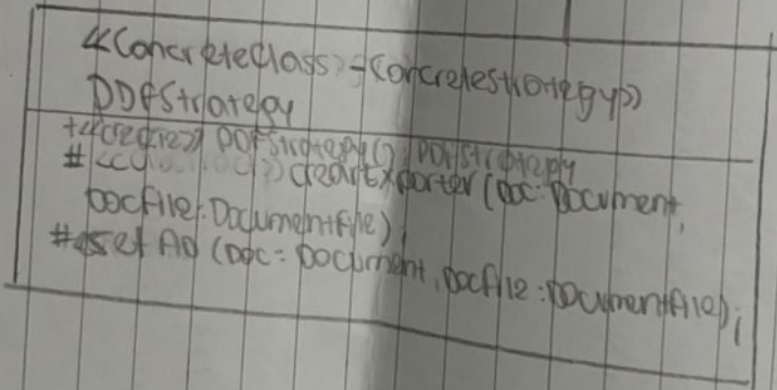 <<ConcreteClass>-ConcreteStrategy>>
PDFStrategy
+<<create>> PDFStrategy(): PDFStrategy
# creatExporter (Doc: Document,
DocFile: DocumentFile);
# set Ad (Doc: Document, DocFile: DocumentFile);